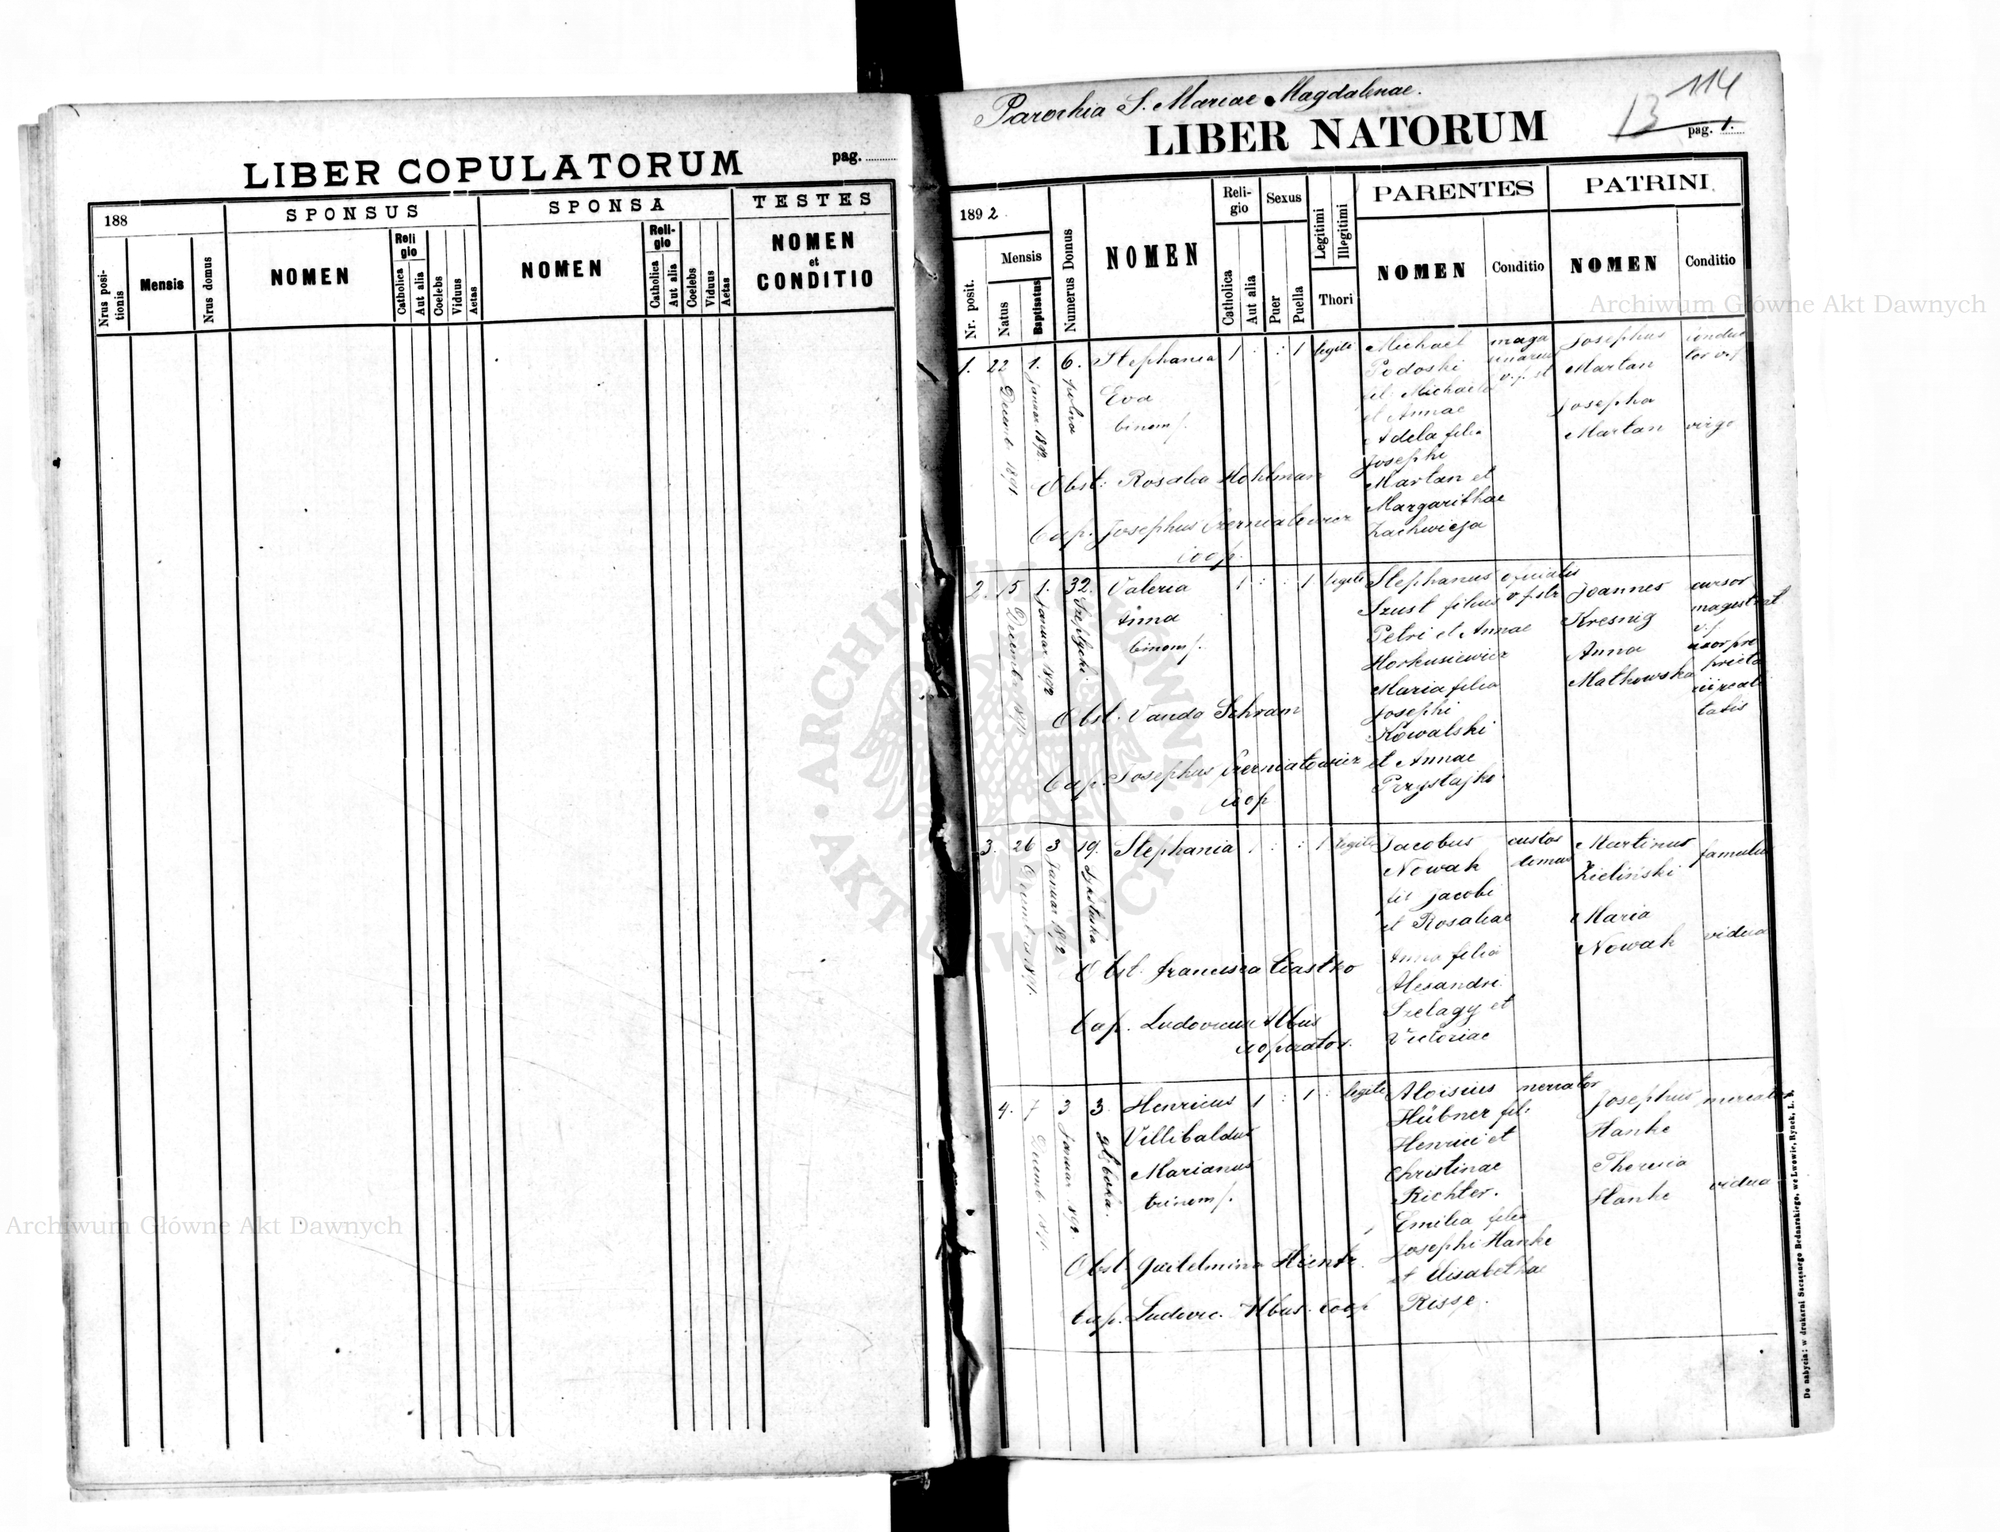 LIBER COPULATORUM
pag.
188
SPONSUS
SPONSA
TESTES
Nrus positionis
Mensis
Nrus domus
NOMEN
Religio
Catholica
Aut alia
Coelebs
Viduus
Aetas
NOMEN
Religio
Catholica
Aut alia
Coelebs
Viduus
Aetas
NOMEN
et
CONDITIO
Parochia S. Mariae Magdalenae.
114
13
LIBER NATORUM
pag. 1.
1892
Nr. posit.
Mensis
Natus
Baptisatus
Numerus Domus
NOMEN
Religio
Catholica
Aut alia
Sexus
Puer
Puella
Legitimi
Illegitimi
Thori
PARENTES
NOMEN
Conditio
PATRINI
NOMEN
Conditio
1. 22 Decemb. 1891
1. Januar 1892
6.
Stephania
Eva
binom.
1 : : 1 legiti
Michael
Podoski
fil. Michaelis
et Annae
Adela filia
Josephi
Martan et
Margarithae
Zachwieja
Josephus
Martan
Josepha
Martan
virgo
Obst. Rosalia Mohlman
Bap. Josephus
coop.
2. 15 Decemb. 1891
1. Januar 1892
32.
Valeria
Anna
binom.
1 : : 1 legiti
Stephanus
Szust filius
Petri et Annae
Horkusiewicz
Maria filia
Josephi
Kowalski
et Annae
Przystajko
Joannes
Kresnig
Anna
Matkowska
cursor
magistrat
uxor pro
prieta
rii reali
tatis
Obst. Vanda Schram
Bap. Josephus
coop
3. 26 Decembris 1891.
3 Januar 1892
19. Łyczakowska
Stephania
1 : : 1 legiti
Jacobus
Nowak
fil Jacobi
et Rosaliae
Anna filia
Alexandri
Szelagy et
Victoriae
custos
domus
Martinus
Zieliński
famulus
Maria
Nowak
vidua
Obst. Francisca Ciastko
Bap. Ludovicus Albus
cooperator.
4. 7 Decemb. 1891.
3 Januar 1892
3.
Henricus
Villibaldus
Marianus
trinom.
1 : 1 : legiti
Aloisius
Hübner fil.
Henrici et
Christinae
Richter.
Emilia filia
Josephi Hanke
et Elisabethae
Risse.
mercator
Josephus
Hanke
mercator
Theresia
Hanke
vidua
Obst. Guilelmina
Bap. Ludovic. Albus. coop
Do nabycia: w drukarni Szczęsnego Bednarskiego, we Lwowie, Rynek, L. 9.
Archiwum Główne Akt Dawnych
Archiwum Główne Akt Dawnych
ARCHIWUM GŁÓWNE AKT DAWNYCH